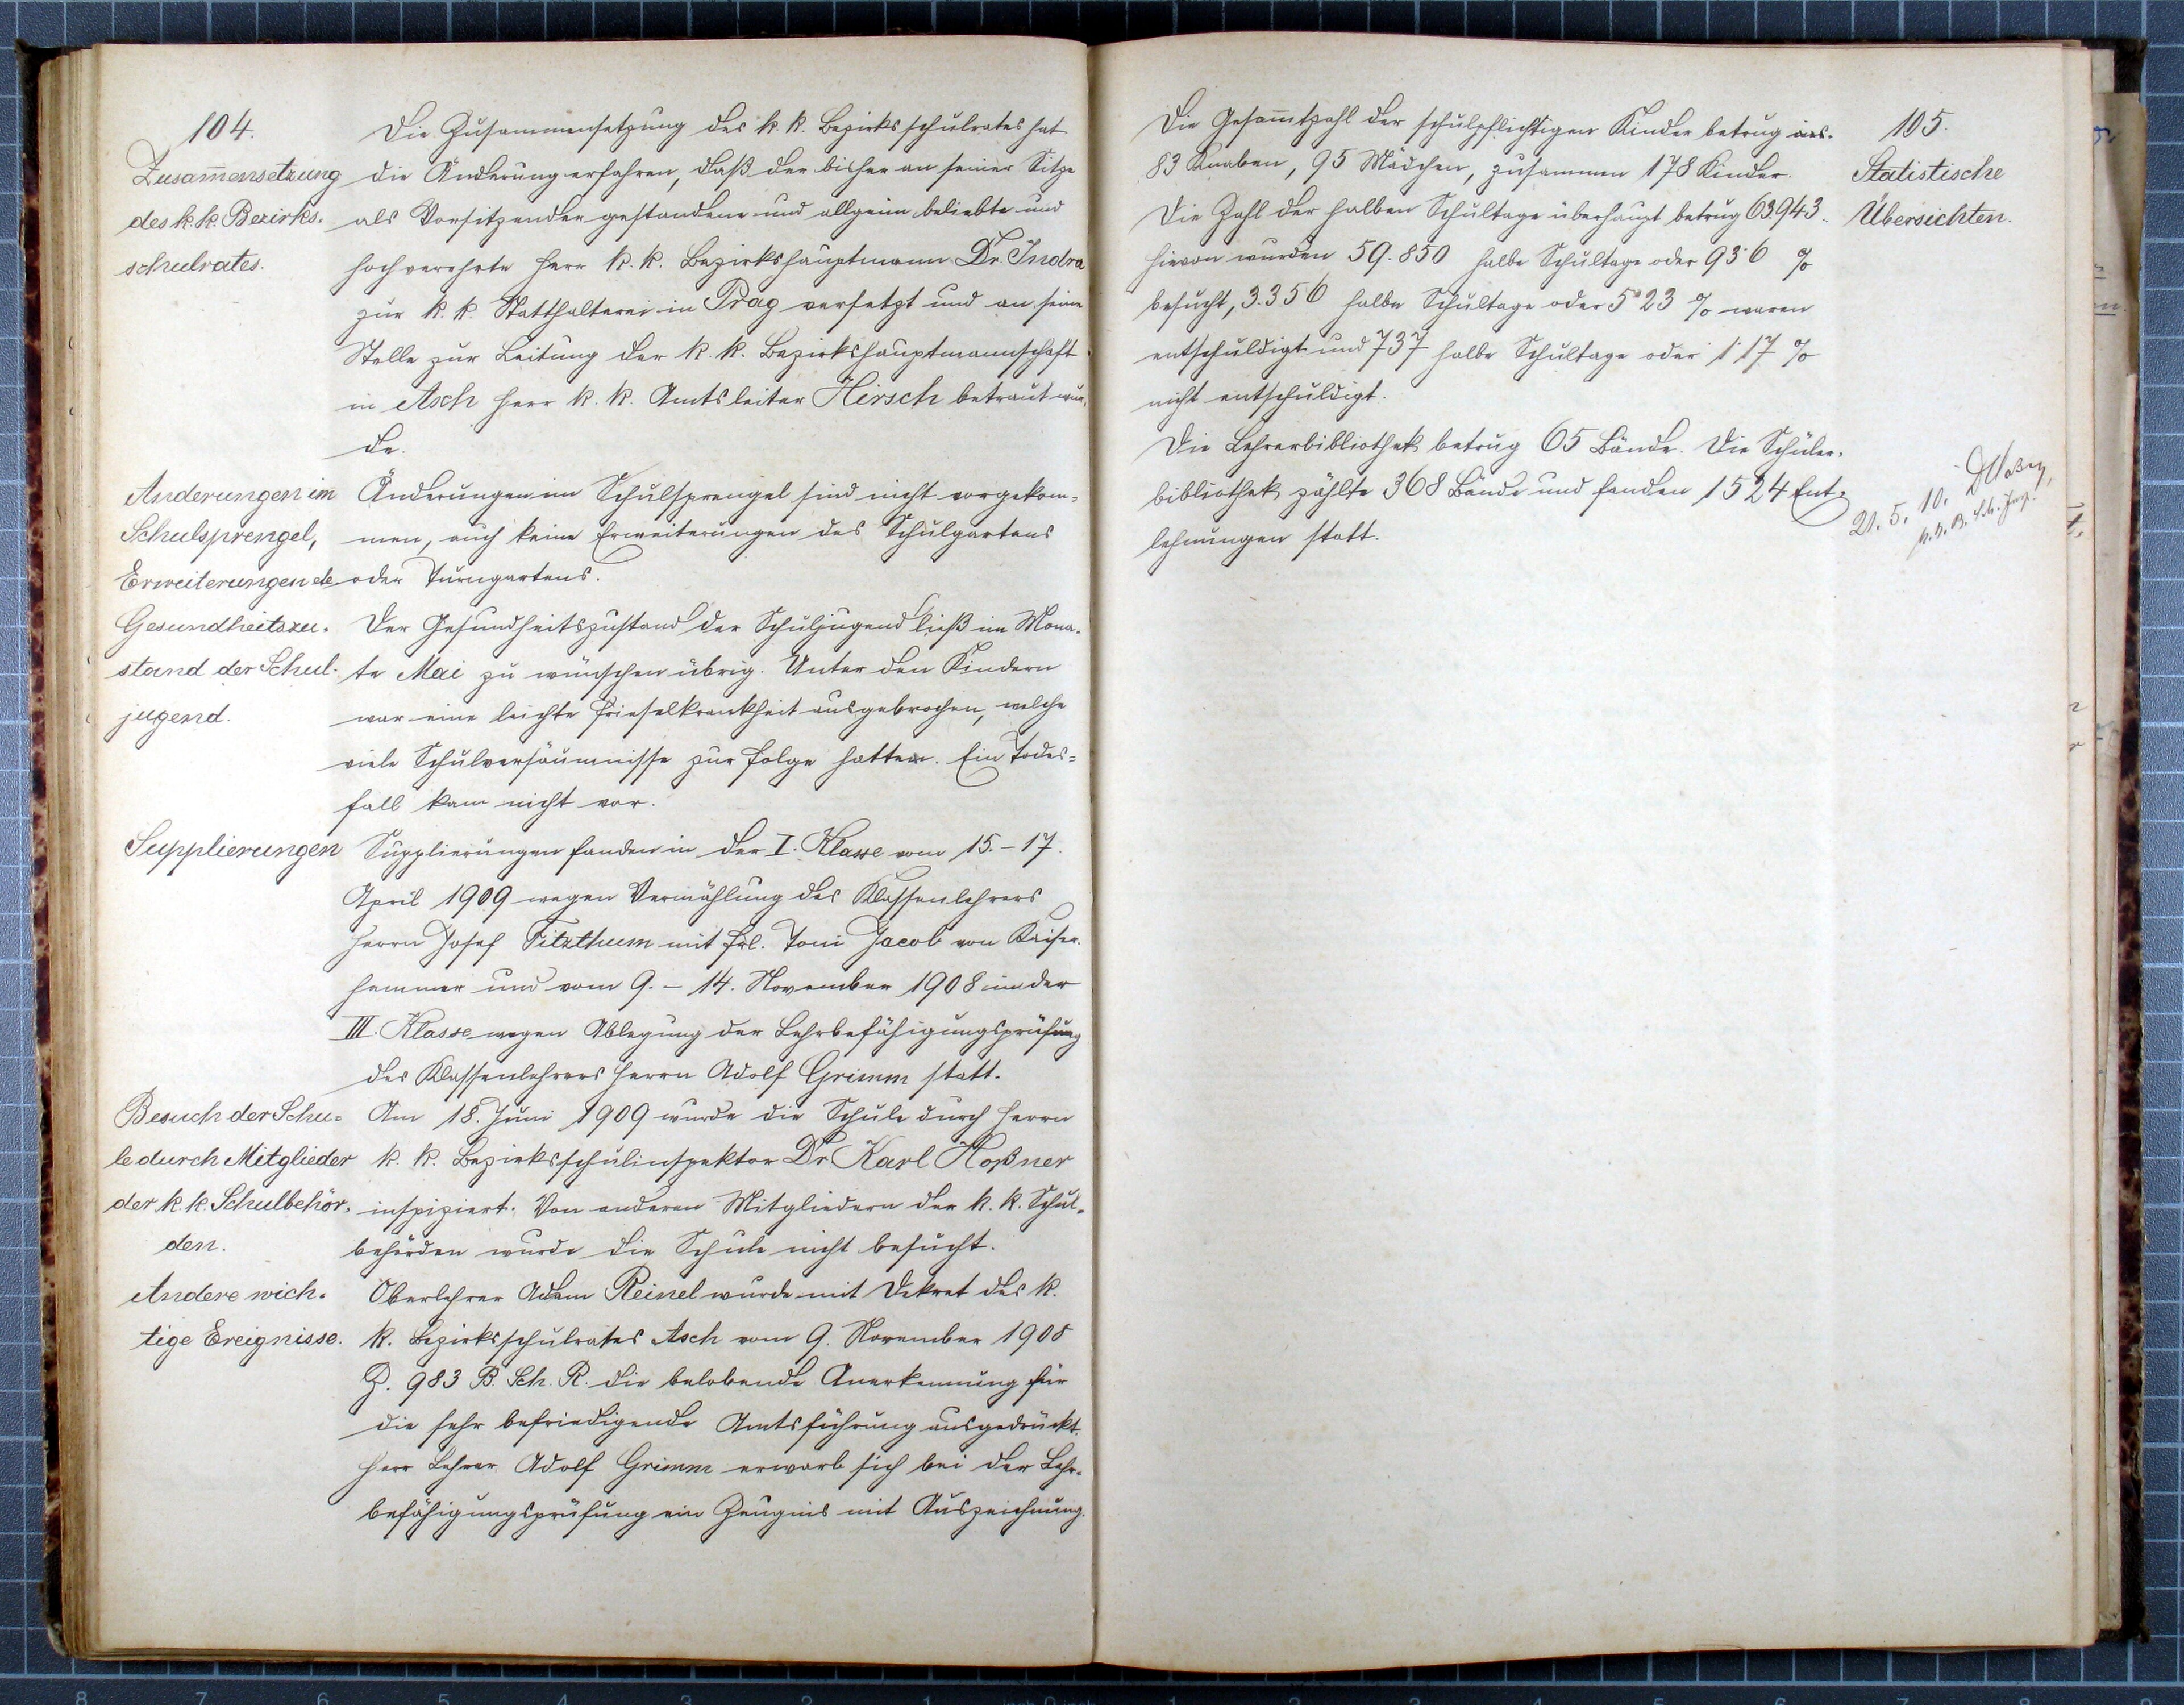 104.
Zusam̅ensetzung
des k. k. Bezirks-
schulrates.
Die Zusammensetzung des k. k. Bezirksschulrates hat
die Änderung erfahren, daß der bisher an seiner Sitze
als Vorsitzender gestandene und allgeim beliebte und
hochverehrte Herr k. k. Bezirkshauptmann Dr. Indra
zur k. k. Statthalterei in Prag versetzt und an seine
Stelle zur Leitung der k. k. Bezirkshauptmannschaft
in Asch Herr k. k. Amtsleiter Hirsch betraut wur-
de.
Änderungen im
Schulsprengel,
Erweiterungen etc
Änderungen im Schulsprengel sind nicht vorgekom-
men, auch keine Erweiterungen des Schulgartens
oder Turngartens.
Gesundheitszu-
stand der Schul-
jugend.
Der Gesundheitszustand der Schuljugend ließ im Mona-
te Mai zu wünschen übrig. Unter den Kindern
war eine leichte Frieselkrankheit ausgebrochen, welche
viele Schulversäumnisse zur Folge hatte. Ein Todes-
fall kam nicht vor.
Supplierungen
Supplierungen fanden in der I. Klasse vom 15. - 17.
April 1909 wegen Vermählung des Klassenlehrers
Herrn Josef Fitzthum mit Frl. Toni Jacob von Kaiser-
hammer und vom 9. - 14. November 1908 in der
III. Klasse wegen Ablegung der Lehrbefähigungsprüfung
des Klassenlehrers Herrn Adolf Grimm statt.
Besuch der Schu-
le durch Mitglieder
der k. k. Schulbehör-
den.
Am 18. Juni 1909 wurde die Schule durch Herrn
k. k. Bezirksschulinspektor Dr Karl Hoßner
inspiziert. Von anderen Mitgliedern der k. k. Schul-
behörden wurde die Schule nicht besucht.
Andere wich-
tige Ereignisse.
Oberlehrer Adam Reinel wurde mit Dekret des k.
k. Bezirksschulrates Asch vom 9. November 1908
Z. 983 B. Sch. R. die belobende Anerkennung für
die sehr befriedigende Amtsführung ausgedrückt.
Herr Lehrer Adolf Grimm erwarb sich bei der Lehr-
befähigungsprüfung ein Zeugnis mit Auszeichnung.
105.
Statistische
Übersichten.
Die Gesam̅tzahl der schulpflichtigen Kinder betrug
83 Knaben, 95 Mädchen, zusammen 178 Kinder.
Die Zahl der halben Schultage überhaupt betrug 63.943.
Hievon wurden 59.850 halbe Schultage oder 93·6 %
besucht, 3.356 halbe Schultage oder 5·23 % waren
entschuldigt und 737 halbe Schultage oder 1·17 %
nicht entschuldigt.
Die Lehrerbibliothek betrug 65 Bände. Die Schüler-
bibliothek zählte 368 Bände und fanden 1524 Ent-
lehnungen statt.
21. 5. 10.
k. k. B. Sch. Insp.